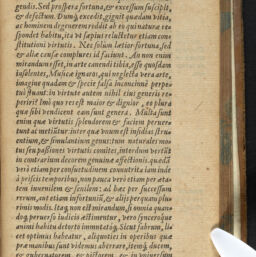 gendis. Sed prospera fortuna, & excessum suscipit,
& defectum. Dumque excedit, gignit quædam vitia,
ac hominem degenerem reddit ab eo quinatura re-
spondet habitu, ita ut sæpius reluctetur etiam con-
stitutioni virtutis. Nec solum lætior fortuna, sed
& aliæ causæ complures id faciunt. An non enim
mirandum esset, in arte canendi tibia, esse quosdam
insolentes, Musicæ ignaros, qui neglecta vera arte,
imagine quadam & specie falsa inconcinnè perpe-
tuò
in virtute autem nihil eius generis re-
periri? Imò quo res est maior & dignior, eo plura
quæ sibi vendicent eam sunt genera. Multa sunt
enim quæ virtutis splendorem & faciem peruer-
tunt ac inter quæ vnum est insidias stru-
entium, & simulantium genus: tum naturales mo-
tus seu passiones virtutis comites, interdum versæ
in contrarium decorem genuinæ affectionis. quædã
verò etiam per consuetudinem connutrita iam inde
à priscis temporibus, non pauca verò etiam per æta-
tem iuuenilem & senilem: ad hæc per successum
rerum, aut etiam infortunium, & alijs per quam plu-
rimis modis. Itaque non est mirandum, si omnia quan-
doque peruerso iudicio æstimentur, vero synceroque
animi habitu detorto immutatoque. Sicut fabrum, licet
optimis habeatur, aliquoties in operibus quæ
præ manibus sunt videmus aberrare, itemque ducem,
& gubernatorem, & pictorem, & in vniuersum